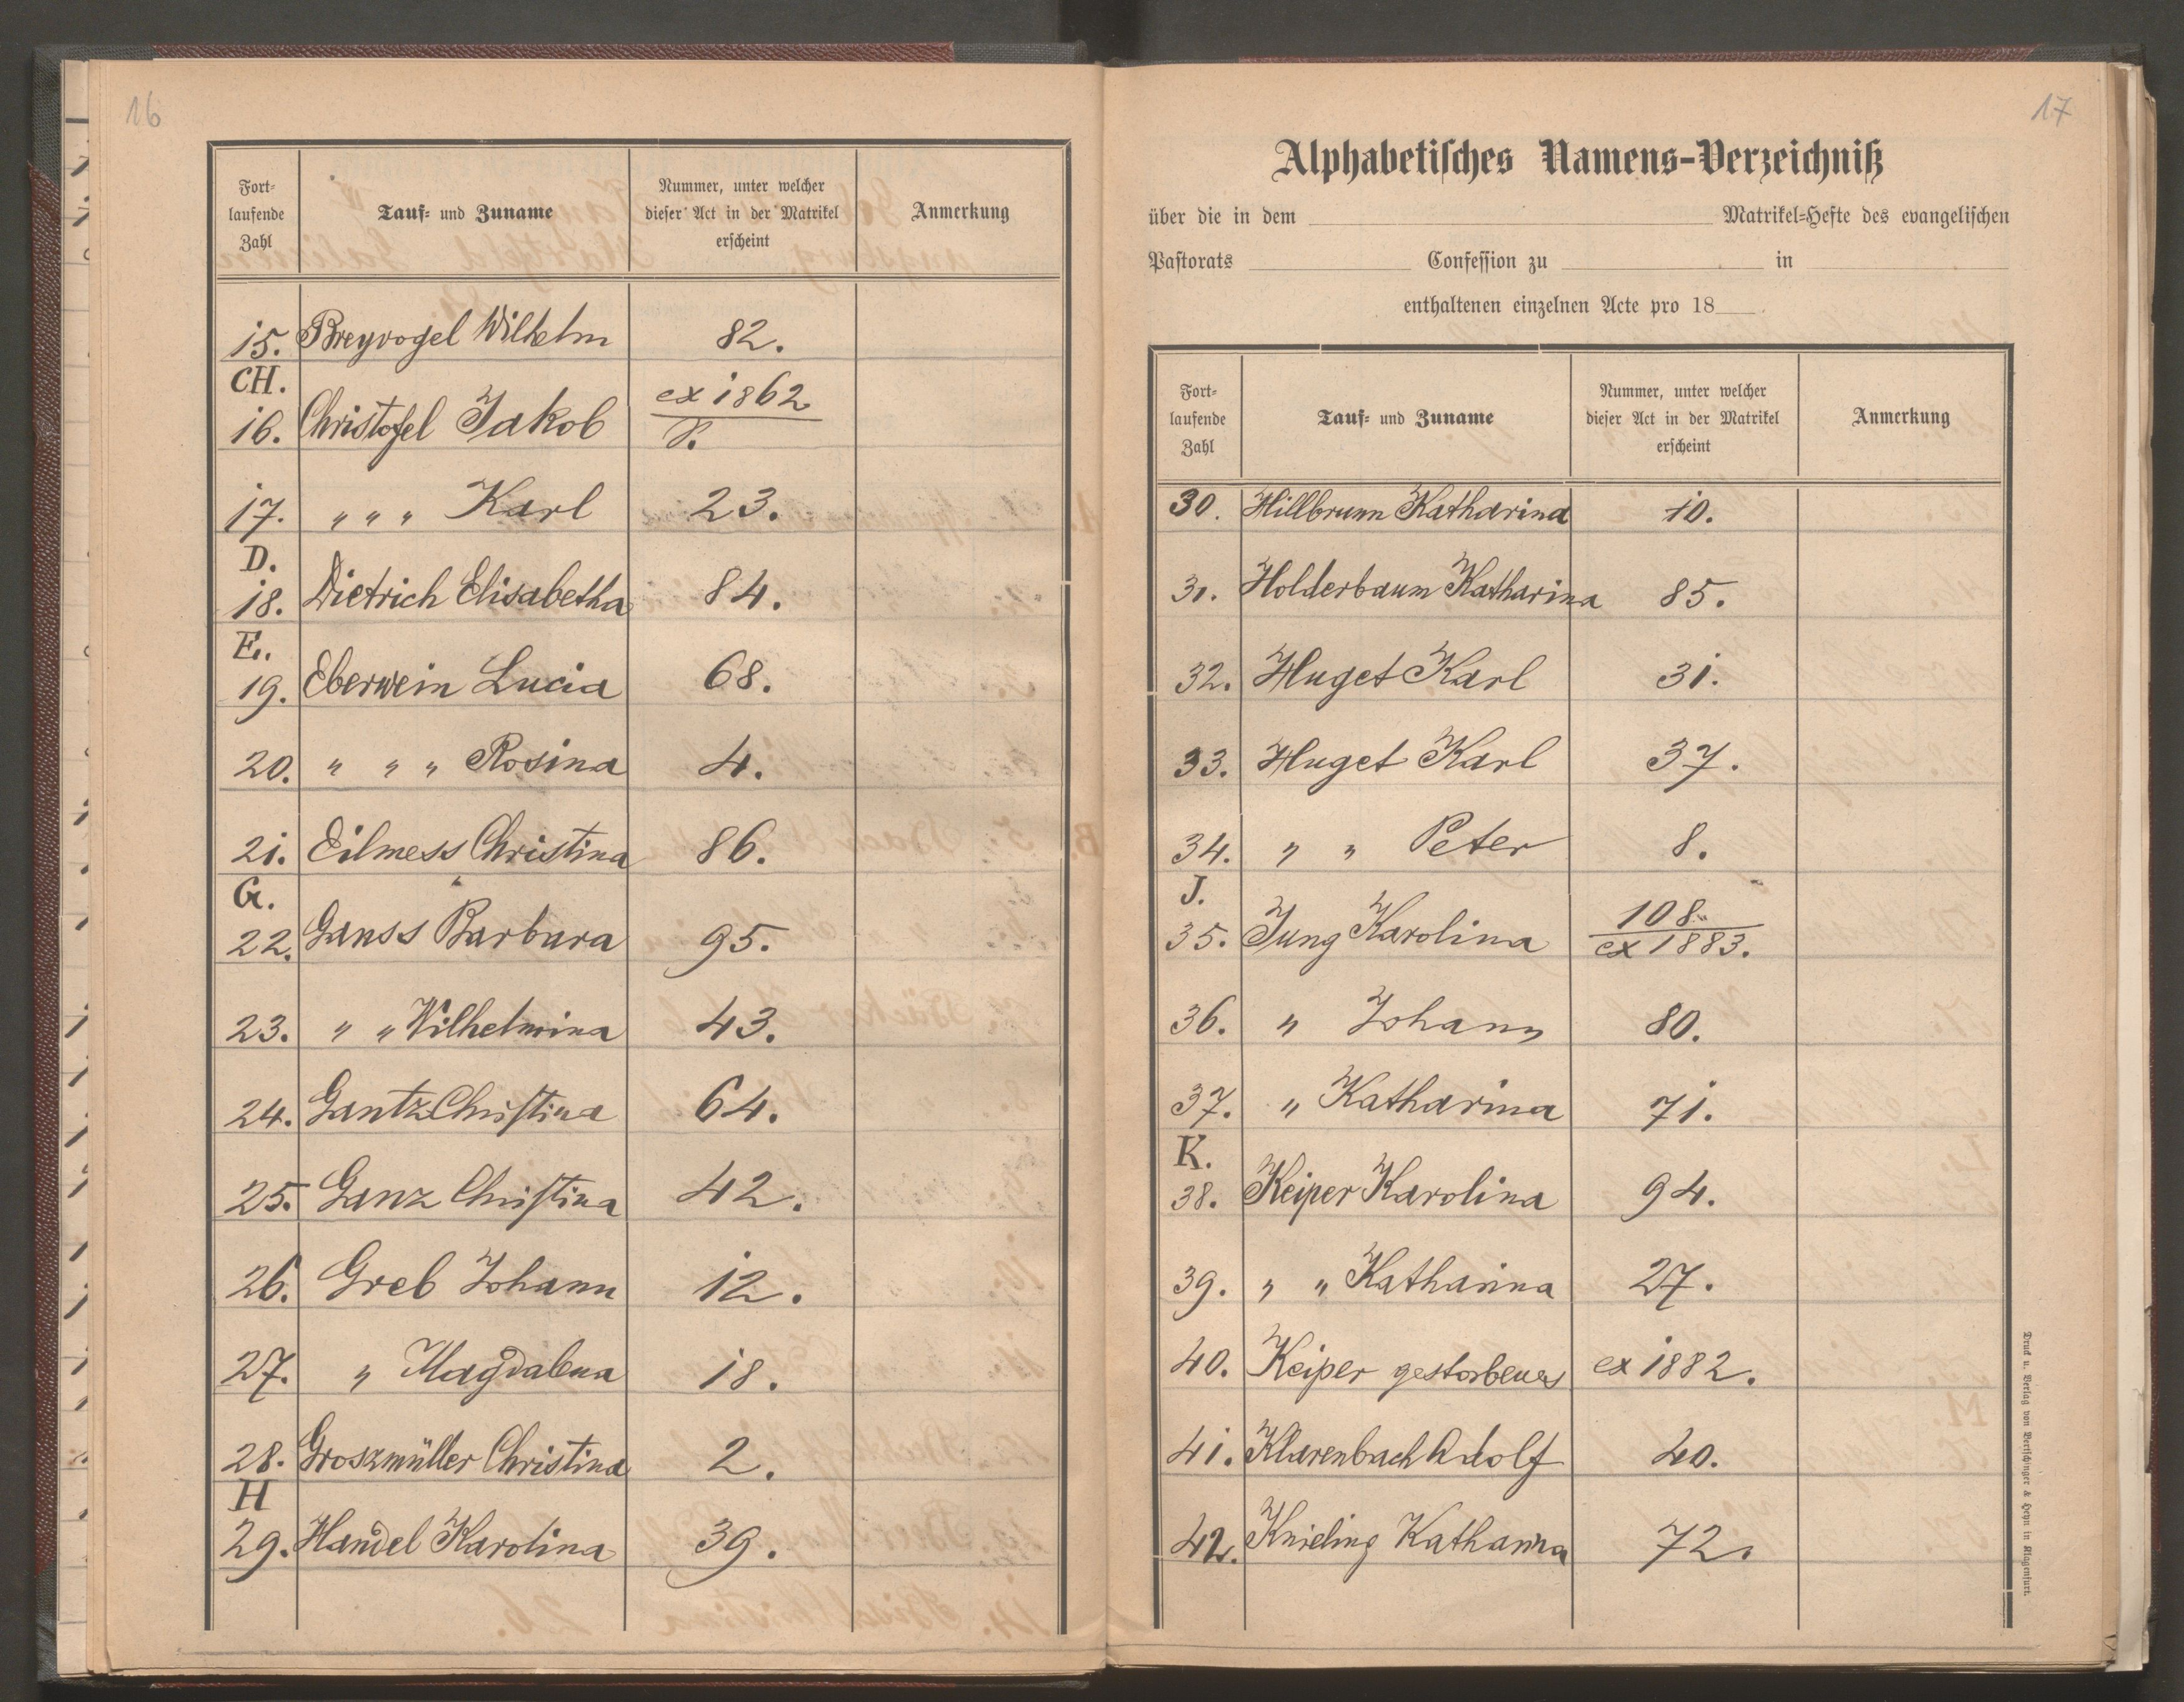 16
Fort-
laufende
Zahl
Tauf- und Zuname
Nummer, unter welcher
dieser Act in der Matrikel
erscheint
Anmerkung
15. Breyvogel Wilhelm 82.
CH.
16. Christofel Jakob ex 1862
P.
17. " " " Karl 23.
D.
18. Dietrich Elisabetha 84.
E.
19. Eberwein Lucia 68.
20. " " " Rosina 4.
21. Eilmess Christina 86.
G.
22. Ganss Barbara 95.
23. " " Wilhelmina 43.
24. Gantz Christina 64.
25. Ganz Christina 42.
26. Greb Johann 12.
27. " Magdalena 18.
28. Groszmüller Christina 2.
H
29. Handel Karolina 39.
17
Alphabetisches Namens-Verzeichniß
über die in dem Matrikel-Hefte des evangelischen
Pastorats Confession zu in
enthaltenen einzelnen Acte pro 18
Fort-
laufende
Zahl
Tauf- und Zuname
Nummer, unter welcher
dieser Act in der Matrikel
erscheint
Anmerkung
30. Hillbrunn Katharina 10.
31. Holderbaum Katharina 85.
32. Huget Karl 31.
33. Huget Karl 37.
34. " " Peter 8.
J.
35. Jung Karolina 108.
ex 1883.
36. " Johann 80.
37. " Katharina 71.
K.
38. Keiper Karolina 94.
39. " " Katharina 27.
40. Keiper gestorbenes ex 1882.
41. Klarenbach Adolf 40.
42. Knieling Katharina 72.
Druck u. Verlag von Bertschinger & Heyn in Klagenfurt.